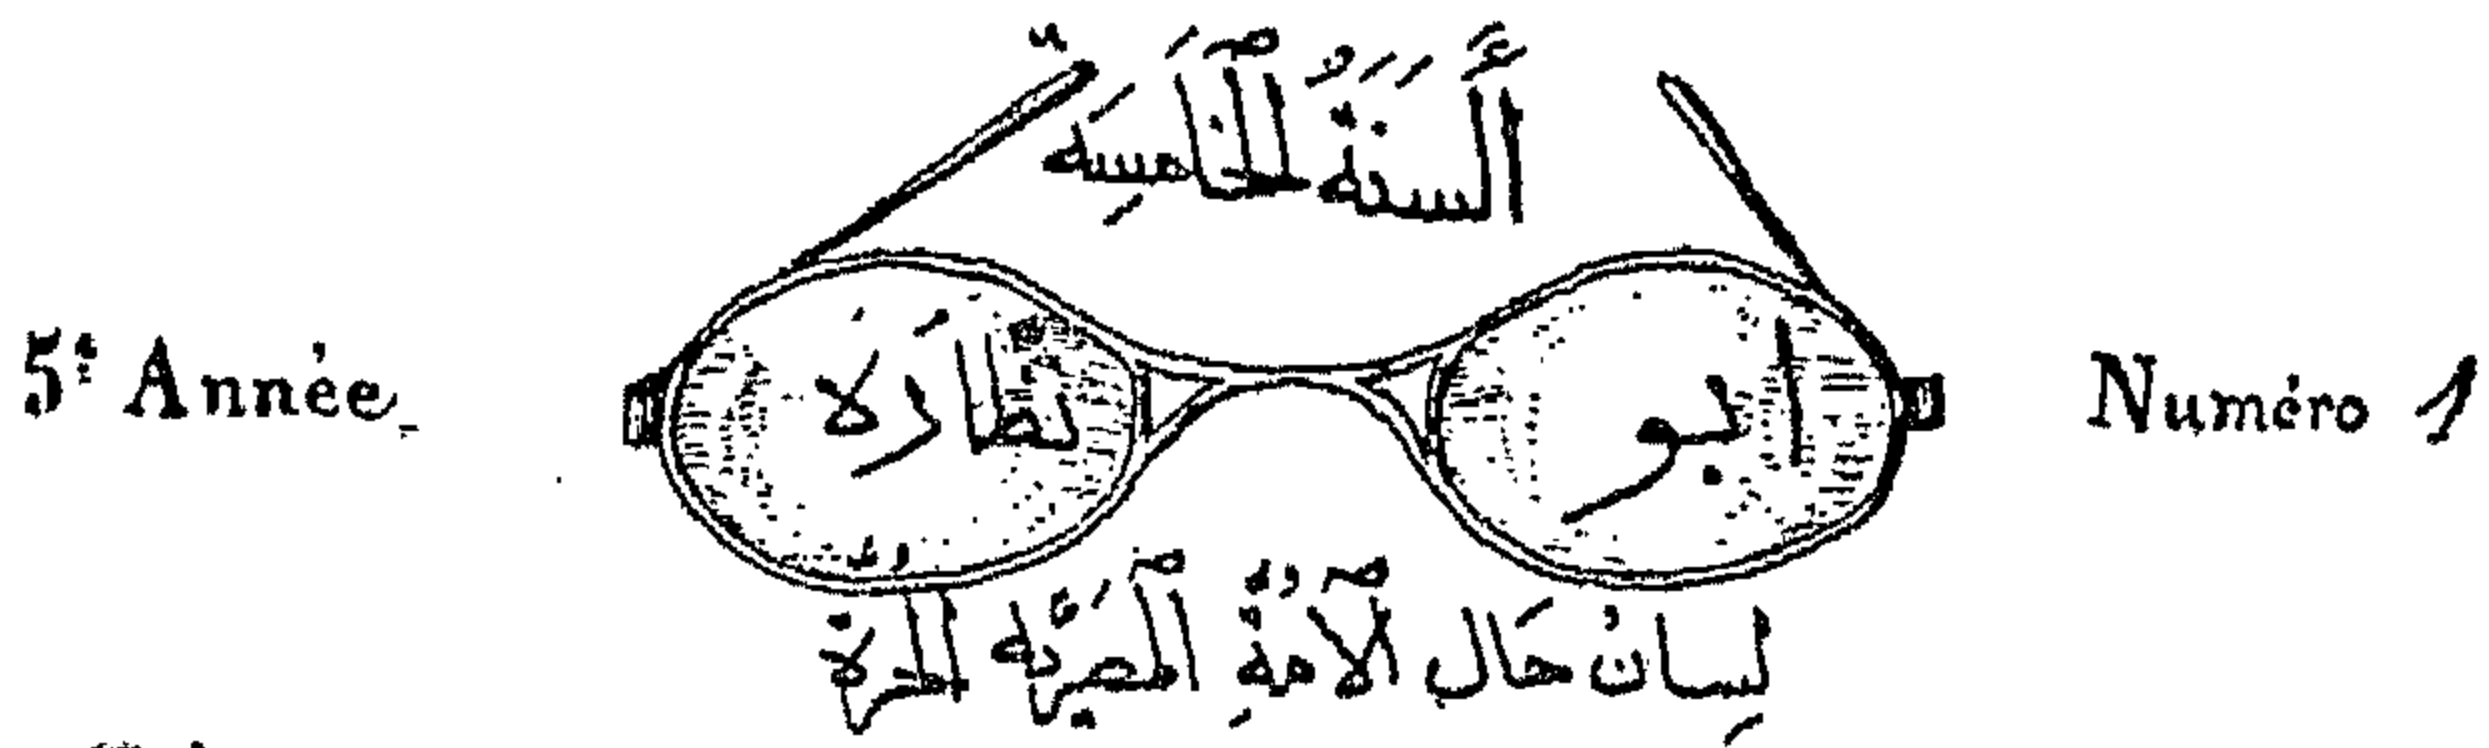 السنة الخامسة
5e Année
ابو نظارة
Numéro 1
لسان حال الامة المصرية الحرة